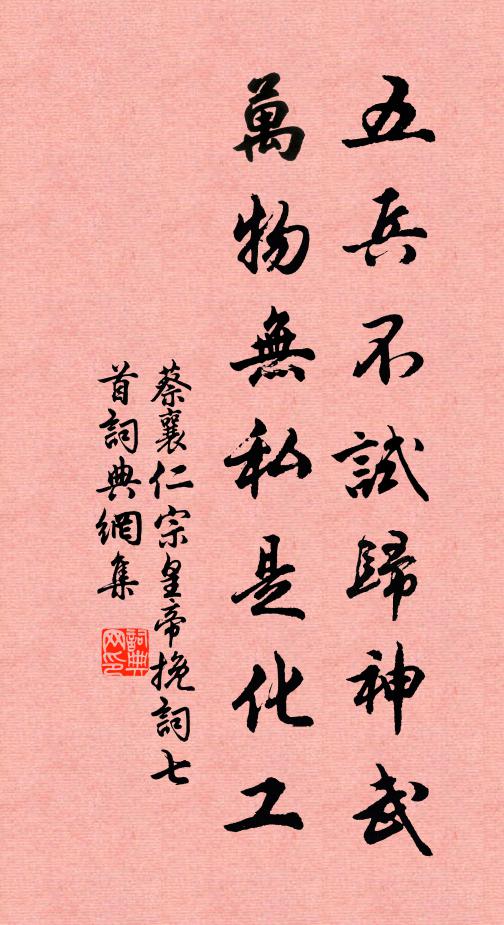 五兵不試歸神武
萬物無私是化工
蔡襄仁宗皇帝挽詞七
首詞典網集
詞典網印